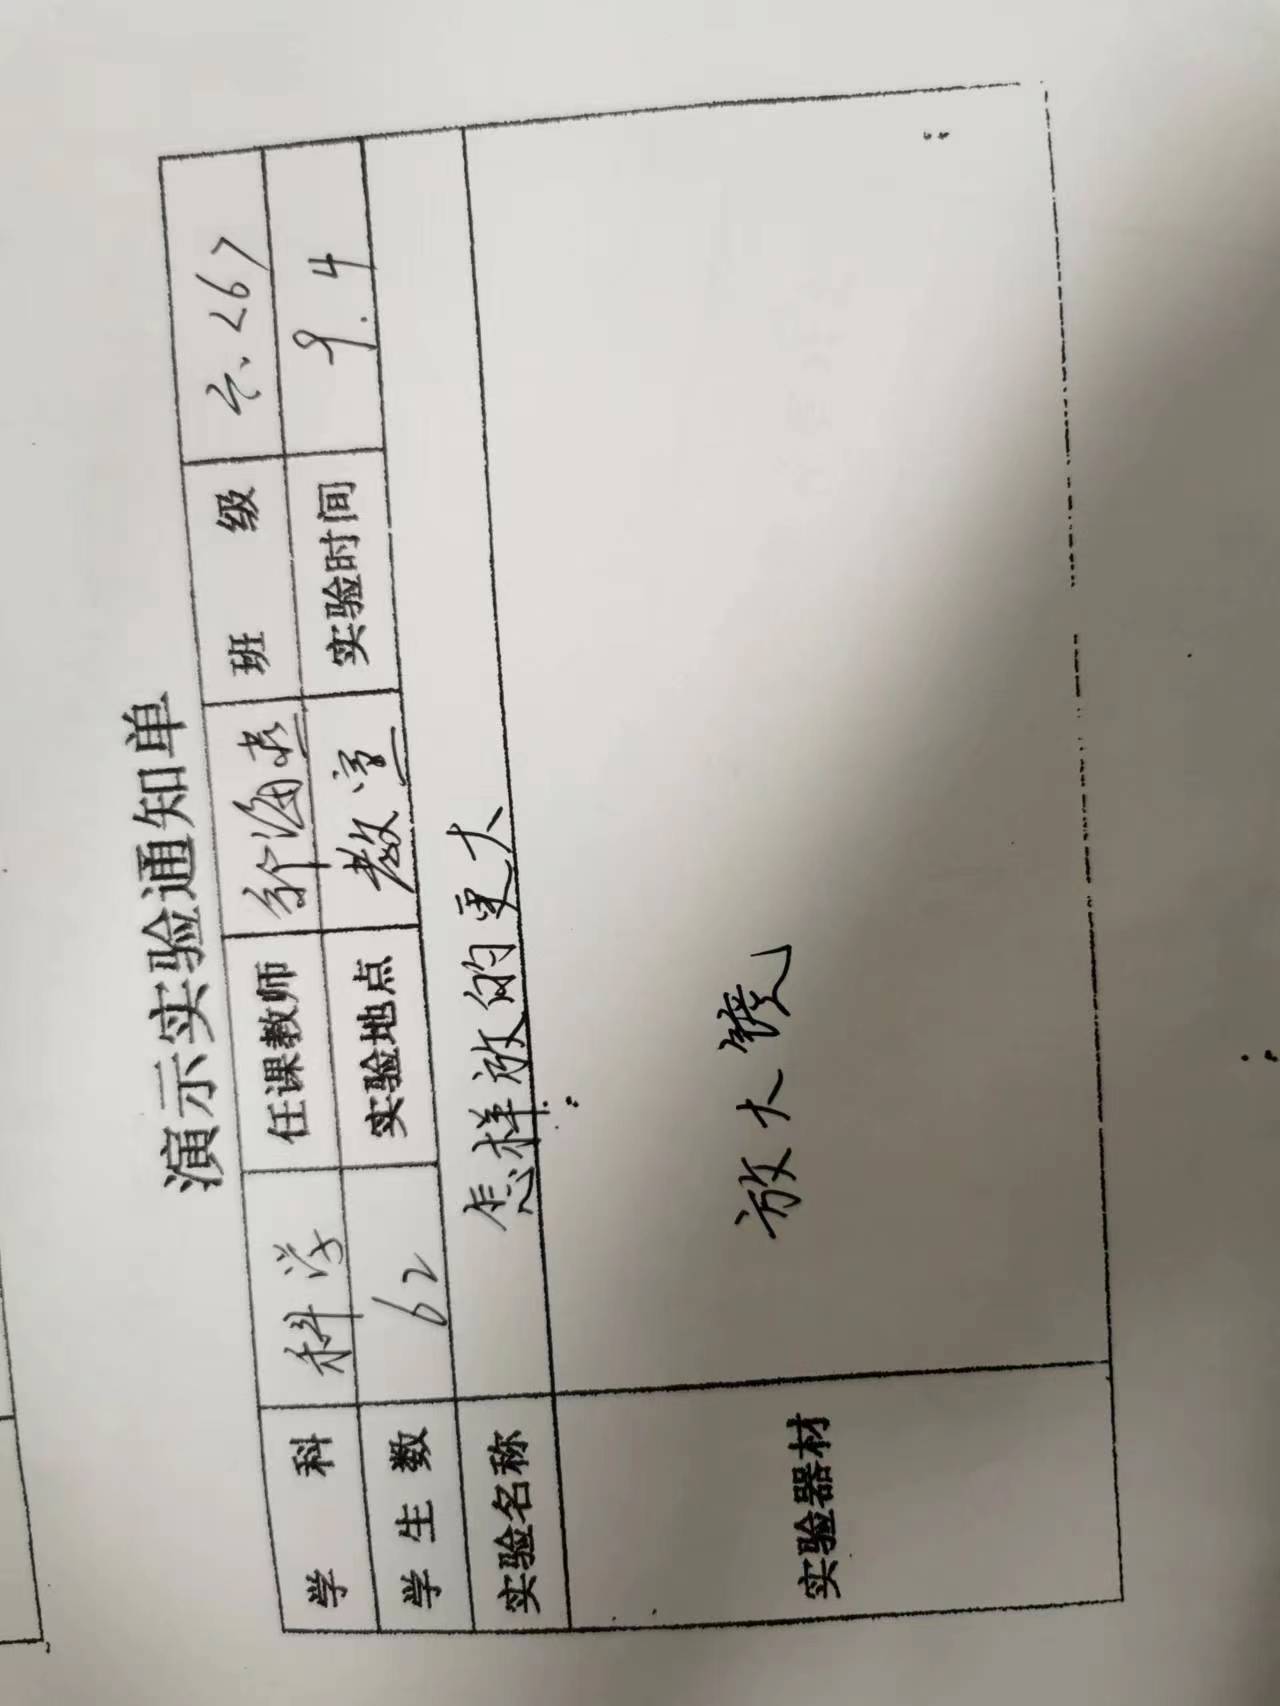 演示实验通知单
学 科 科学 任课教师 海 班 级 六.<6>
学 生 数 62 实验地点 教室 实验时间 9.4
实验名称 怎样放的更大
实验器材 放大镜